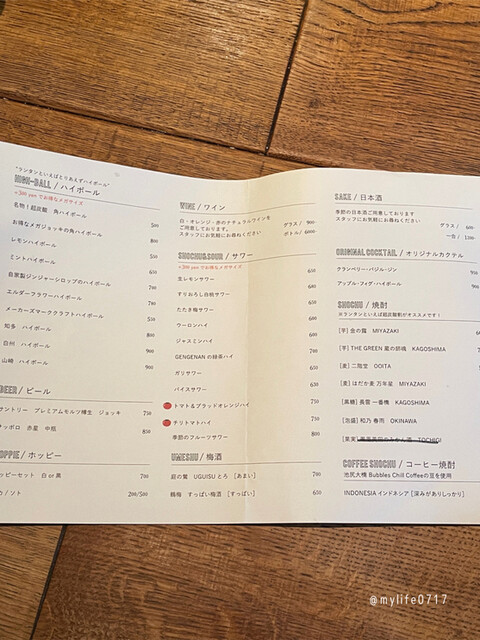 "ランタンといえばとりあえずハイボール"
HIGH-BALL / ハイボール
+200 yen でお得なメガサイズ
名物！超炭酸 角ハイボール 500
お得なメガジョッキの角ハイボール 800
レモンハイボール 500
ミントハイボール 650
自家製ジンジャーシロップのハイボール 700
エルダーフラワーハイボール 700
メーカーズマーククラフトハイボール 500
知多 ハイボール 800
白州 ハイボール 900
山崎 ハイボール 900
BEER / ビール
サントリー プレミアムモルツ樽生 ジョッキ 750
サッポロ 赤星 中瓶 850
HOPPIE / ホッピー
ホッピーセット 白 or 黒 700
ナカ / ソト 200/500
WINE / ワイン
白・オレンジ・赤のナチュラルワインを
ご用意しております。
スタッフにお気軽にお尋ねください
グラス / 900~
ボトル / 6000~
SHOCHU&SOUR / サワー
+200 yen でお得なメガサイズ
生レモンサワー
すりおろし白桃サワー
たたき梅サワー
ウーロンハイ
ジャスミンハイ
GENGENAN の緑茶ハイ
ガリサワー
バイスサワー
トマト&ブラッドオレンジハイ 750
チリトマトハイ 750
季節のフルーツサワー 800
UMESHU / 梅酒
庭の鶯 UGUISU とろ ［あまい］ 700
鶴梅 すっぱい梅酒 ［すっぱい］ 650
SAKE / 日本酒
季節の日本酒ご用意しております
スタッフにお気軽にお尋ねください
グラス / 600
一合 / 1200
ORIGINAL COCKTAIL / オリジナルカクテル
クランベリー・バジル・ジン 950
アップル・フィグ・ハイボール
SHOCHU / 焼酎
※ランタンといえば超炭酸割がオススメです！
[芋] 金の露 MIYAZAKI
[芋] THE GREEN 蔵の師魂 KAGOSHIMA
[麦] 二階堂 OOITA
[麦] はだか麦 万年星 MIYAZAKI
[黒糖] 長雲 一番橋 KAGOSHIMA
[泡盛] 和乃 春雨 OKINAWA
TOCHIGI
COFFEE SHOCHU / コーヒー焼酎
池尻大橋 Bubbles Chill Coffeeの豆を使用
INDONESIA インドネシア ［深みがありしっかり］
@mylife0717